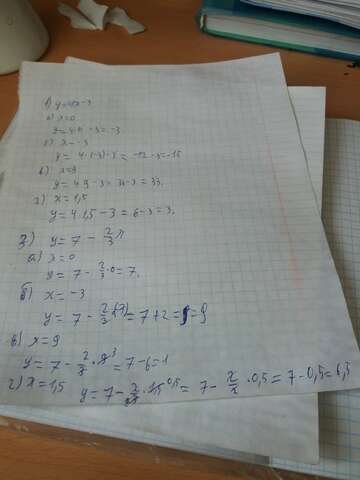 1) y=4x-3
а) x=0
y=4·0-3=-3
б) x=-3
y= 4·(-3)-3=-12-3=-15
в) x=9
y=4·9-3=36-3=33.
г) x=1,5
y=4·1,5-3=6-3=3.
3) y=7-\frac{2}{3}x
а) x=0
y=7-\frac{2}{3}·0=7.
б) x=-3
=7+2=9
в) x=9
y=7-\frac{2}{3}·9^3=7-6=1
г) x=1,5 =7-0,5=6,5